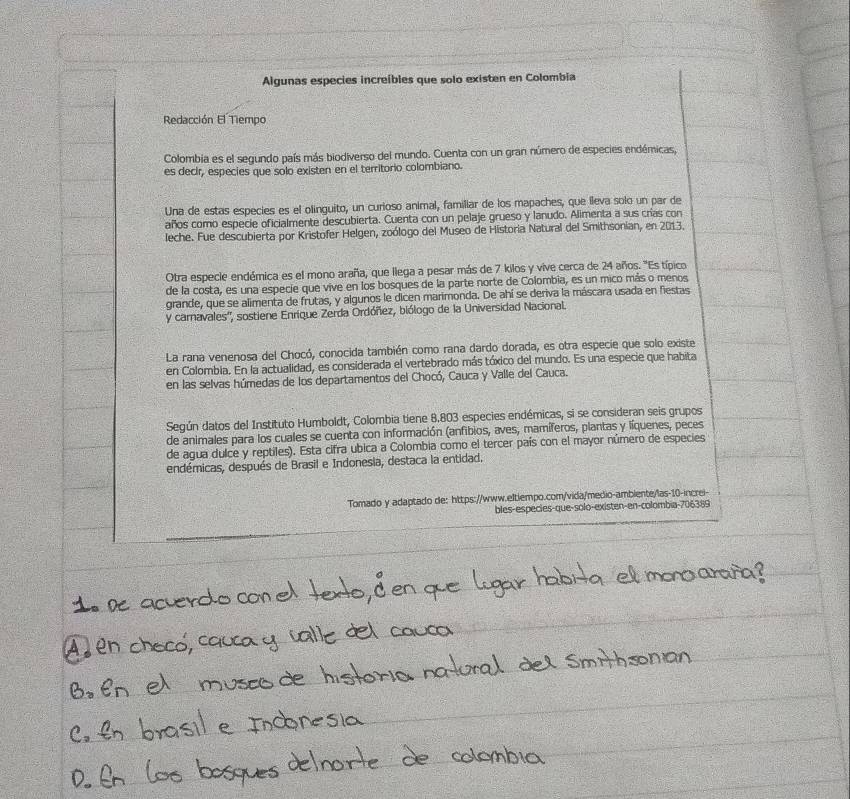 Algunas especies increíbles que solo existen en Colombia
Redacción El Tiempo
Colombia es el segundo país más biodiverso del mundo. Cuenta con un gran número de especies endémicas,
es decir, especies que solo existen en el territorio colombiano.
Una de estas especies es el olinguito, un curioso animal, familiar de los mapaches, que lleva solo un par de
años como especie oficialmente descubierta. Cuenta con un pelaje grueso y lanudo. Alimenta a sus crías con
leche. Fue descubierta por Kristofer Helgen, zoólogo del Museo de Historia Natural del Smithsonian, en 2013.
Otra especie endémica es el mono araña, que llega a pesar más de 7 kilos y vive cerca de 24 años. "Es típico
de la costa, es una especie que vive en los bosques de la parte norte de Colombia, es un mico más o menos
grande, que se alimenta de frutas, y algunos le dicen marimonda. De ahí se deriva la máscara usada en fiestas
y carnavales", sostiene Enrique Zerda Ordóñez, biólogo de la Universidad Nacional.
La rana venenosa del Chocó, conocida también como rana dardo dorada, es otra especie que solo existe
en Colombia. En la actualidad, es considerada el vertebrado más tóxico del mundo. Es una especie que habita
en las selvas húmedas de los departamentos del Chocó, Cauca y Valle del Cauca.
Según datos del Instituto Humboldt, Colombia tiene 8.803 especies endémicas, si se consideran seis grupos
de animales para los cuales se cuenta con información (anfibios, aves, mamíferos, plantas y líquenes, peces
de agua dulce y reptiles). Esta cifra ubica a Colombia como el tercer país con el mayor número de especies
endémicas, después de Brasil e Indonesia, destaca la entidad.
Tomado y adaptado de: https://www.eltiempo.com/vida/medio-ambiente/las-10-increi-
bles-especies-que-solo-existen-en-colombia-706389
1. De acuerdo con el texto, ¿en que lugar habita el mono araña?
A. en chocó, cauca y valle del cauca
B. En el museo de historia natural del Smithsonian
C. En brasil e Indonesia
D. En los bosques del norte de colombia